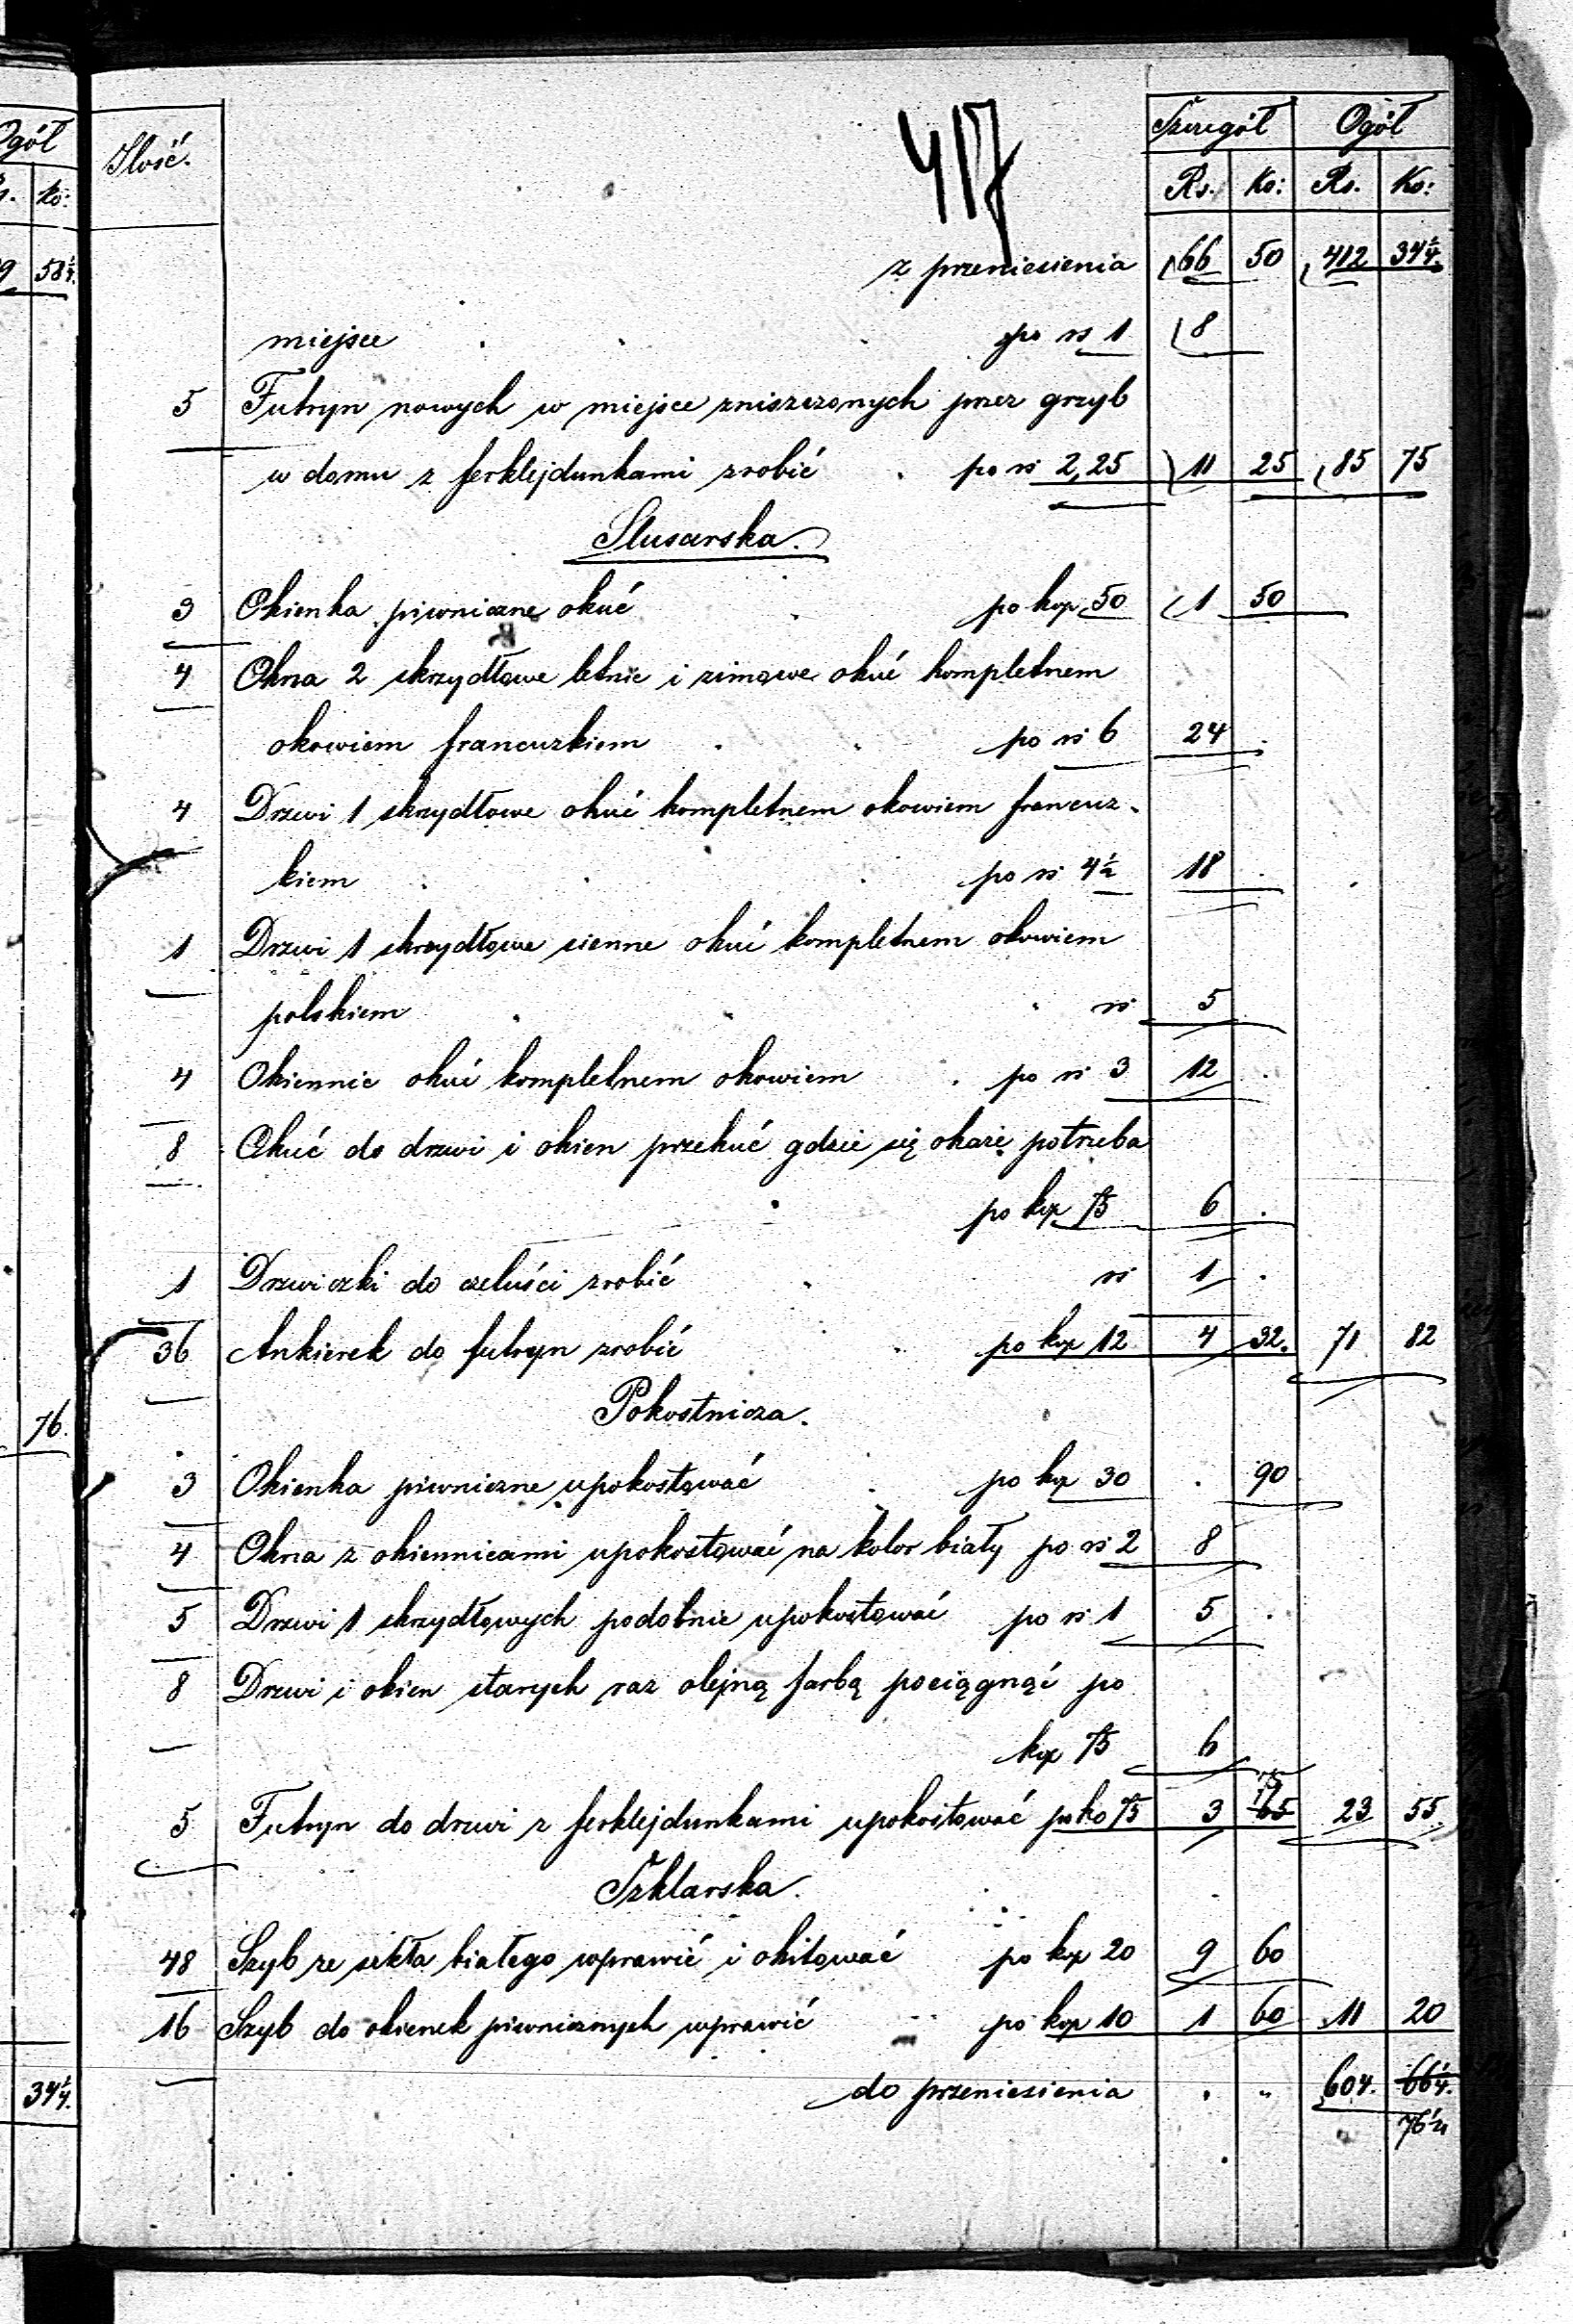 417
Ogół
Ilość.
Szczegół Ogół
ko:
Rs. Ko: Rs. Ko:
9 58¼.
z przeniesienia 66 50 412 34¼.
miejsce po rs 1 8
5 Futryn nowych w miejsce zniszczonych przez grzyb
w domu z ferklejdunkami zrobić po rs 2,25 11 25 85 75
Slusarska.
3 Okienka piwniczne okuć po kop 50 1 50
4 Okna 2 skrzydłowe letnie i zimowe okuć kompletnem
okowiem francuzkiem po rs 6 24 .
4 Drzwi 1 skrzydłowe okuć kompletnem okowiem francuz-
kiem po rs 4½ 18 .
1 Drzwi 1 skrzydłowe sienne okuć kompletnem okowiem
polskiem rs 5
4 Okiennic okuć kompletnem okowiem po rs 3 12 .
8 Okuć do drzwi i okien przekuć gdzie się okaże potrzeba
po kop 75 6 .
1 Drzwiczki do czeluści zrobić rs 1 .
36 Ankierek do futryn zrobić po kop 12 4 32. 71 82
Pokostnicza.
76.
3 Okienka piwniczne upokostować po kop 30 . 90
4 Okna z okiennicami upokostować na kolor biały po rs 2 8
5 Drzwi 1 skrzydłowych podobnie upokostować po rs 1 5 .
8 Drzwi i okien starych raz olejną farbą pociągnąć po
kop 75 6
75
5 Futryn do drzwi z ferklejdunkami upokostować po ko 75 3 65 23 55.
Szklarska.
48 Szyb ze szkła białego wprawić i okitować po kop 20 9 60
16 Szyb do okienek piwnicznych wprawić po kop 10 1 60 11 20
34¼.
do przeniesienia . " 604. 66¼.
76¼